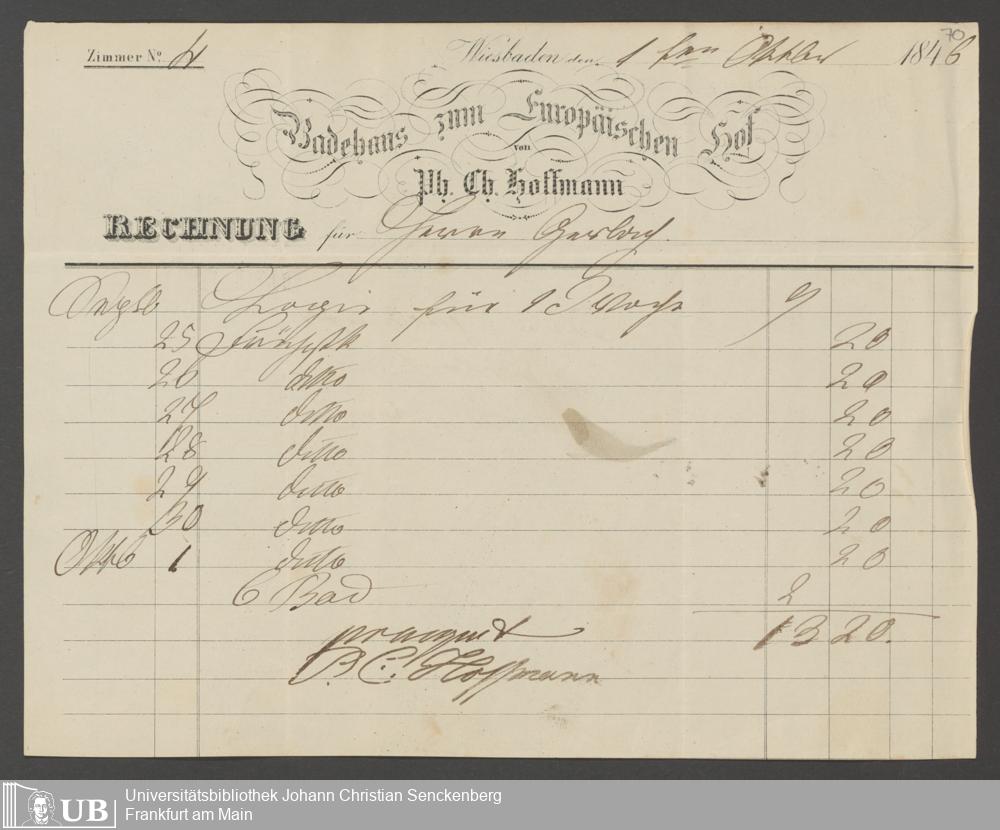 70
Zimmer No. 4 Wiesbaden den 1 ten Oktober 1846
Badehaus zum Europäischen Hof
von
Ph. Ch. Hoffmann
RECHNUNG für Herrn Gerlach
Septb Logis für 1 Woche 9
25 Frühstk 20
26 detto 20
27 detto 20
28 detto 20
29 detto 20
30 detto 20
Oktb 1 detto 20
6 Bad 2
13 20.
P. C. Hoffmann
UB Universitätsbibliothek Johann Christian Senckenberg
Frankfurt am Main